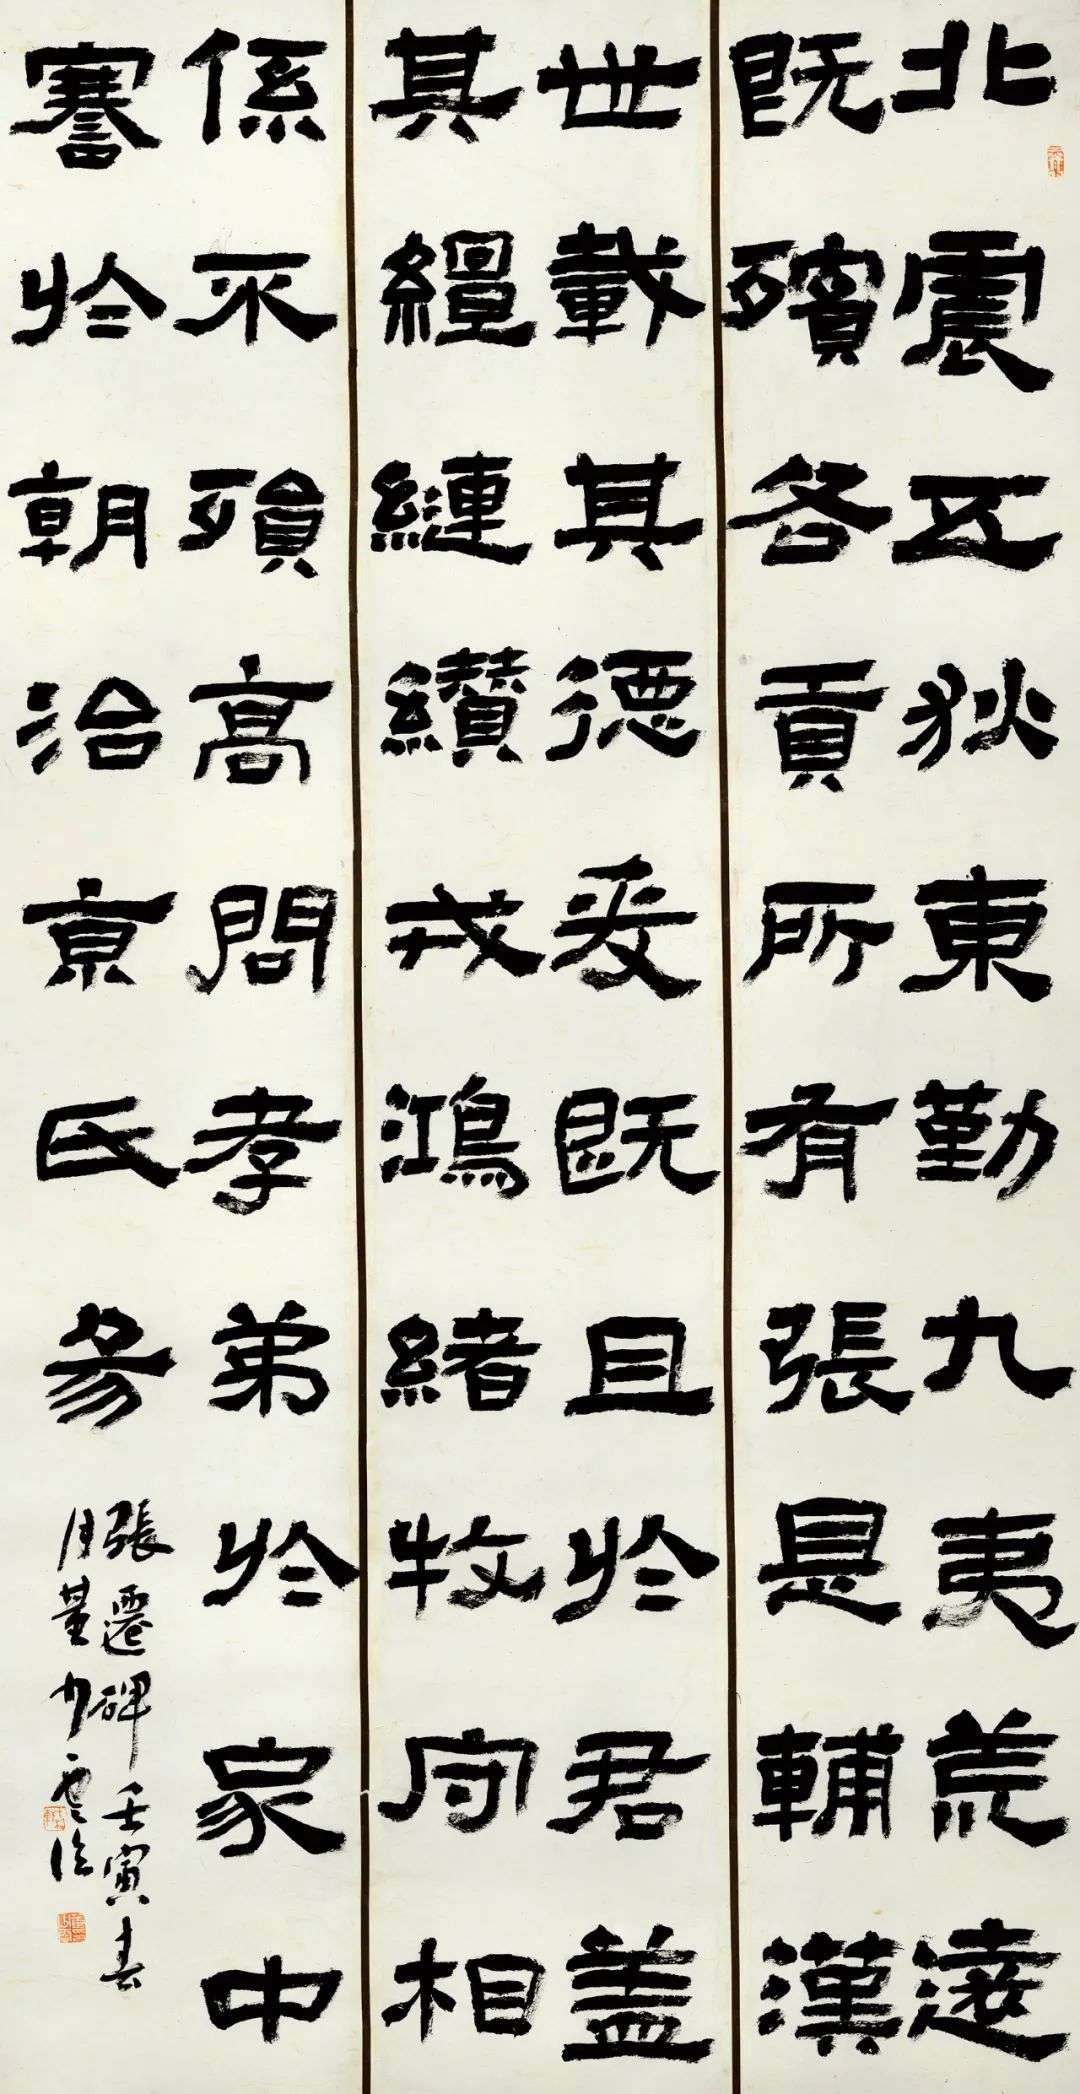 北震五狄東勤九夷荒遠
既殯各貢所有張是輔漢
世載其德爰既且於君盖
其繵縺纘戎鴻緒牧守相
係不殞高問孝弟於家中
謇於朝治京氏易
張遷碑壬寅春
月少雲臨